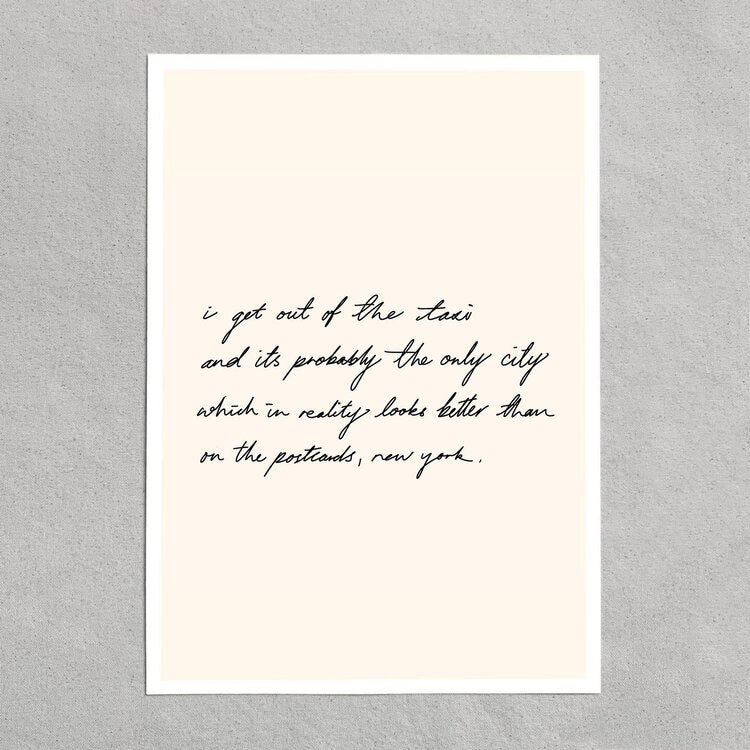 i get out of the taxi
and its probably the only city
which in reality looks better than
on the postcards, new york.